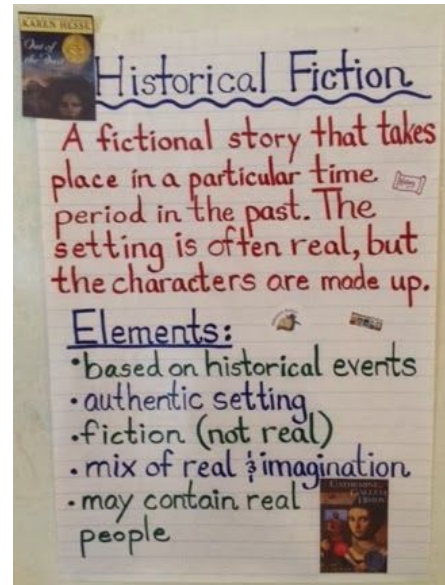 KAREN HESSE
Out of
the Dust
Historical Fiction
A fictional story that takes
place in a particular time
period in the past. The
setting is often real, but
the characters are made up.
Elements:
•based on historical events
•authentic setting
•fiction (not real)
•mix of real & imagination
•may contain real
people
CATHERINE,
CALLED
BIRDY